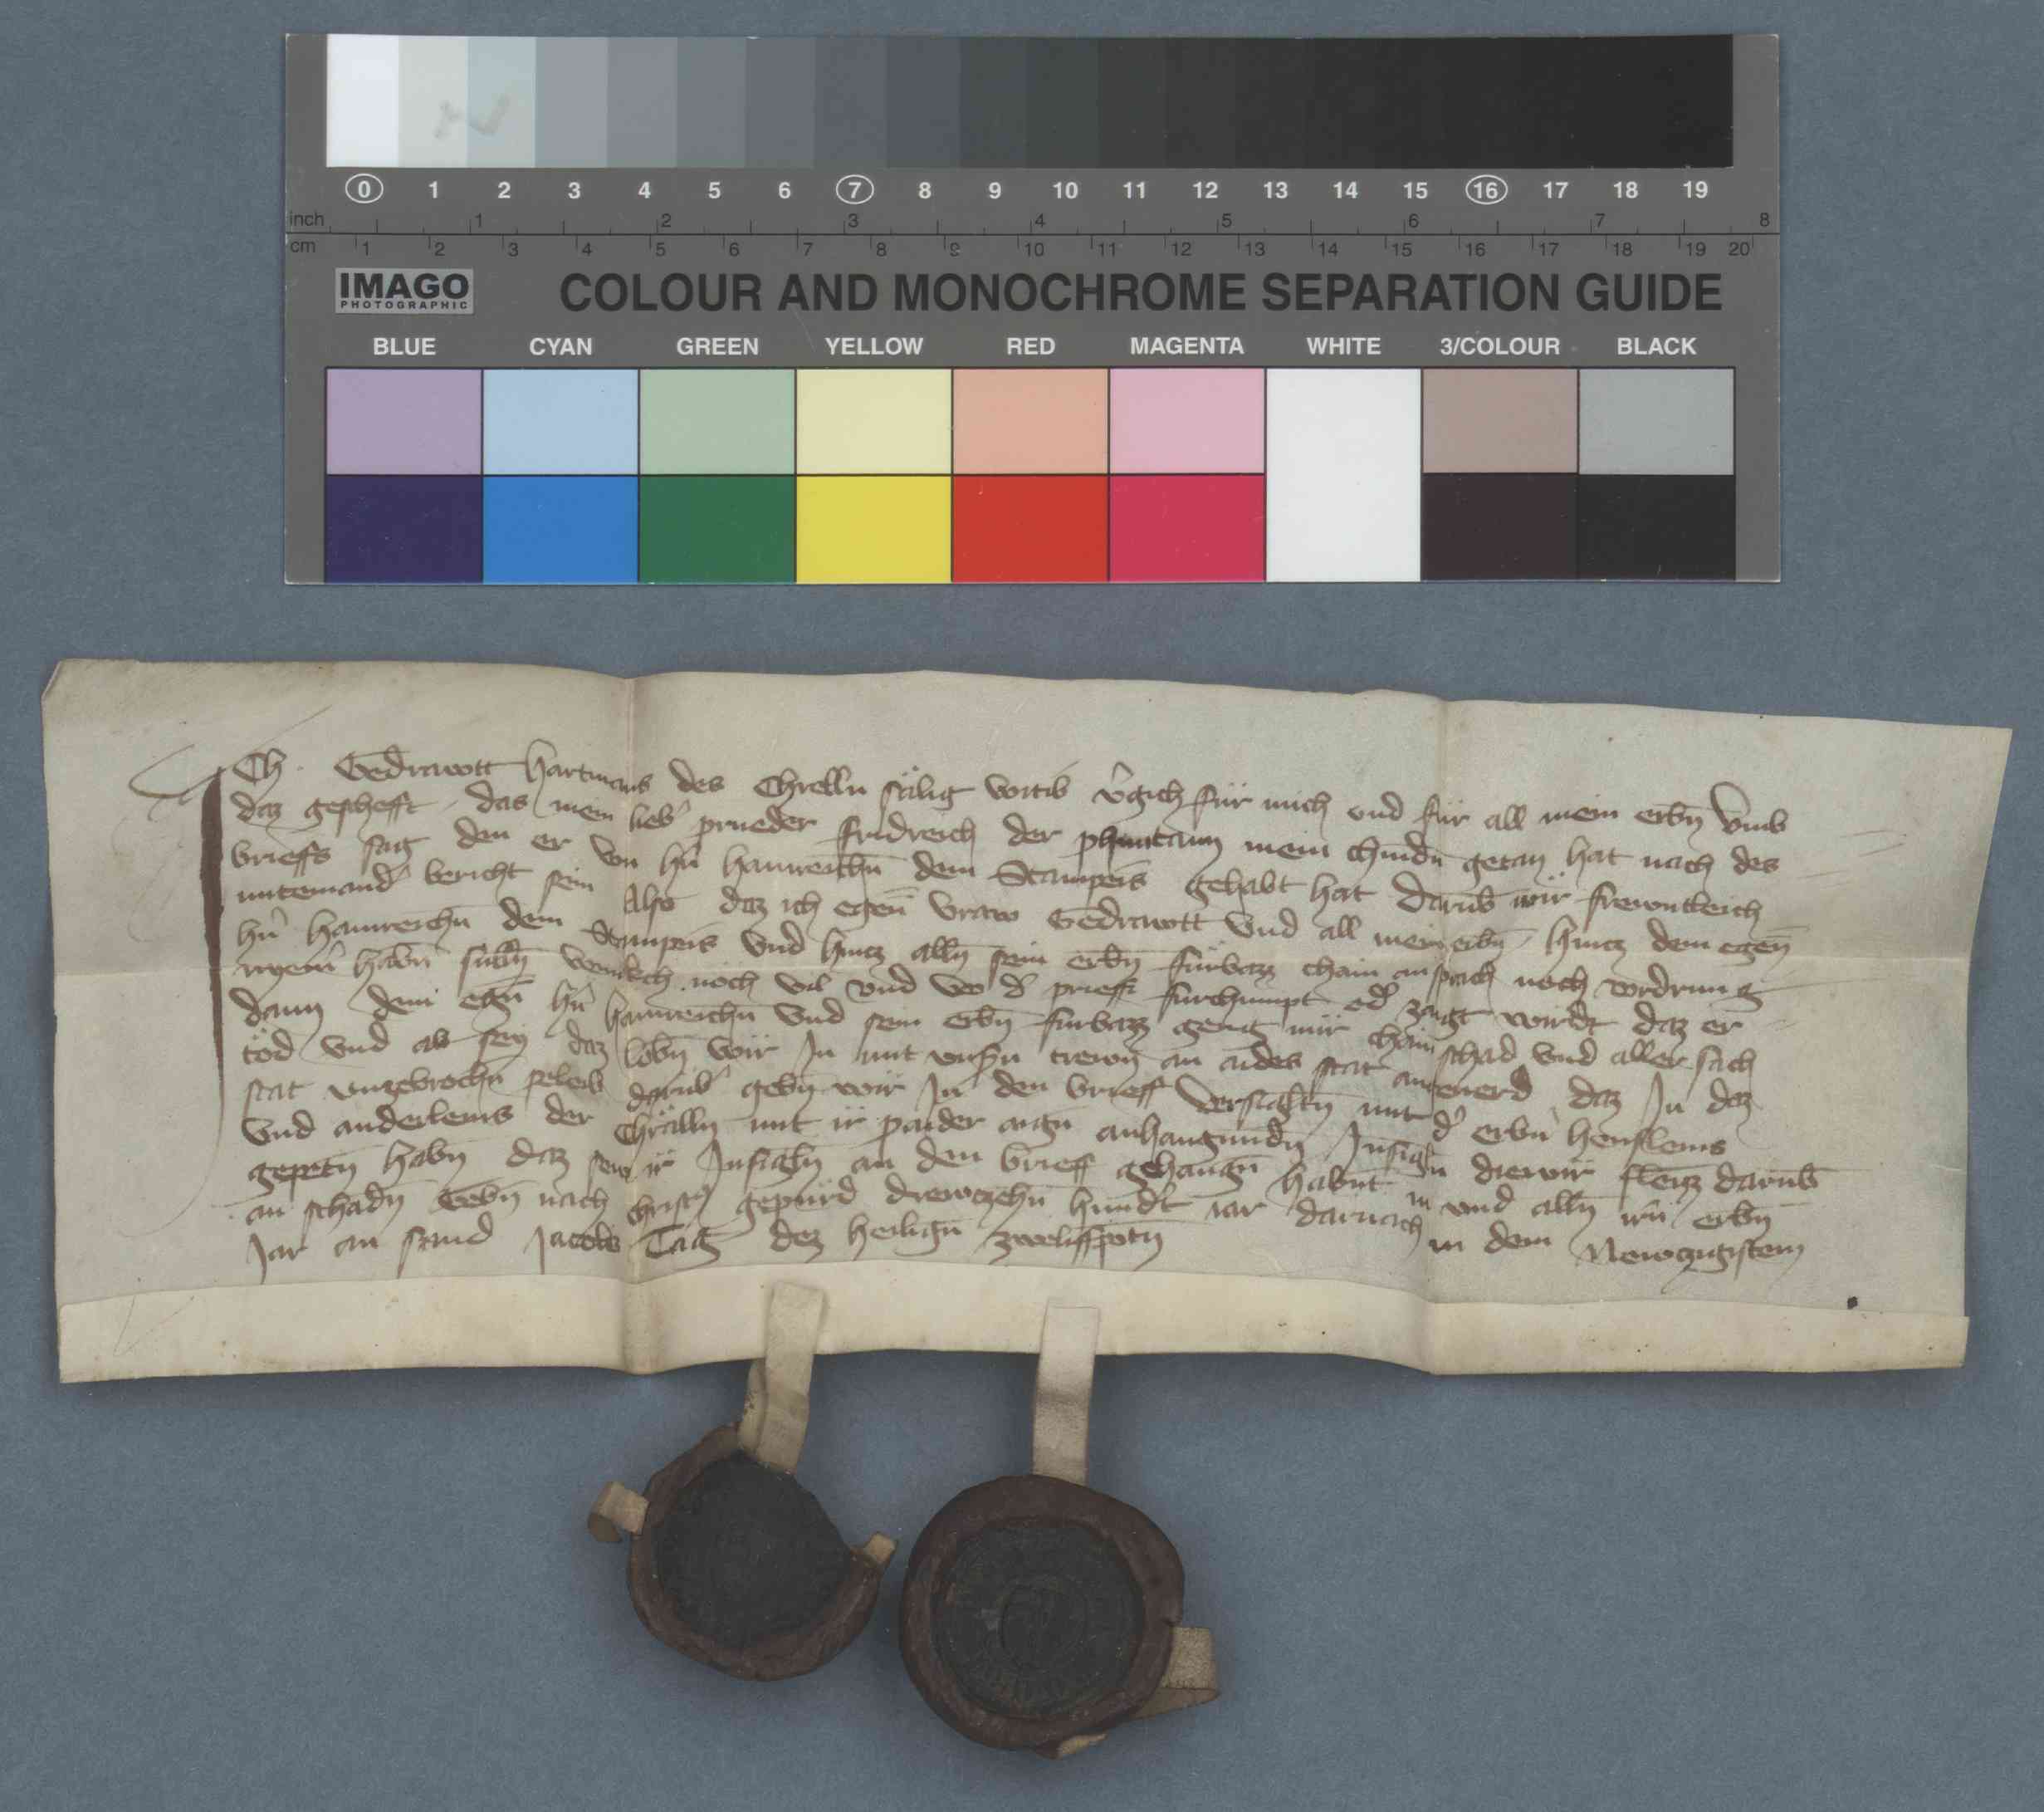 0 1 2 3 4 5 6 7 8 9 10 11 12 13 14 15 16 17 18 19
inch 1 2 3 4 5 6 7 8
cm 1 2 3 4 5 6 7 8 9 10 11 12 13 14 15 16 17 18 19 20
IMAGO
PHOTOGRAPHIC
COLOUR AND MONOCHROME SEPARATION GUIDE
BLUE CYAN GREEN YELLOW RED MAGENTA WHITE 3/COLOUR BLACK
ICh Gedrawtt hartmans des Chrelln sälig witib v̂gich für mich vnd für all mein erbn̄ Vmb
daz geschefft das mein lieb̂ prueder fridreich der mein chindn̄ getan hat nach des
brieffs sag den er von hn̄ hainreichn̄ dem Stampeis gehabt hat Darub̄ wir frewntleich
miteinand̂ bericht sein Also daz ich egen̄ vraw Gedrawtt Vnd all mein erbn̄ hincz dem egen̄
hn̂ hainreichn̄ dem Stampeis Vnd hincz alln̄ sein erbn̄ fürbazz chain anspach noch vordrung
habn̄ sulln̄ noch vil vnd wo d̂ prieff furchumpt od̂ zaigt wirdt daz er
dann dem egn̄ hn̂ hainreichn̄ Vnd sein erbn̄ furbazz geng mir chain schad vnd aller sach
töd vnd ab sey daz lobn̄ wir In mit vnsn̂ trewn̄ an aides stat an daz In daz
stat vnzebrochn̄ peleib darub̂ gebn̄ wir In den brieff Versigltn̄ mit d̂ erbn̂ henslems
Vnd anderlems der Chrälln mit ir paider aign̄ anhangundn̄ Insigln̄ diewir fleizz darub̄
gepetn̄ habn̄ daz sew ir Insigln̄ an den brieff gehangn̄ habnt in vnd alln̄ irn̄ erbn̄
an schadn̄ Gebn̄ nach christ gepurd drewczehn̄ hundt̂ iar darnach in dem Newczigistem
Jar an sand Jacobs Tag dez heilign̄ zwelifpotn̄